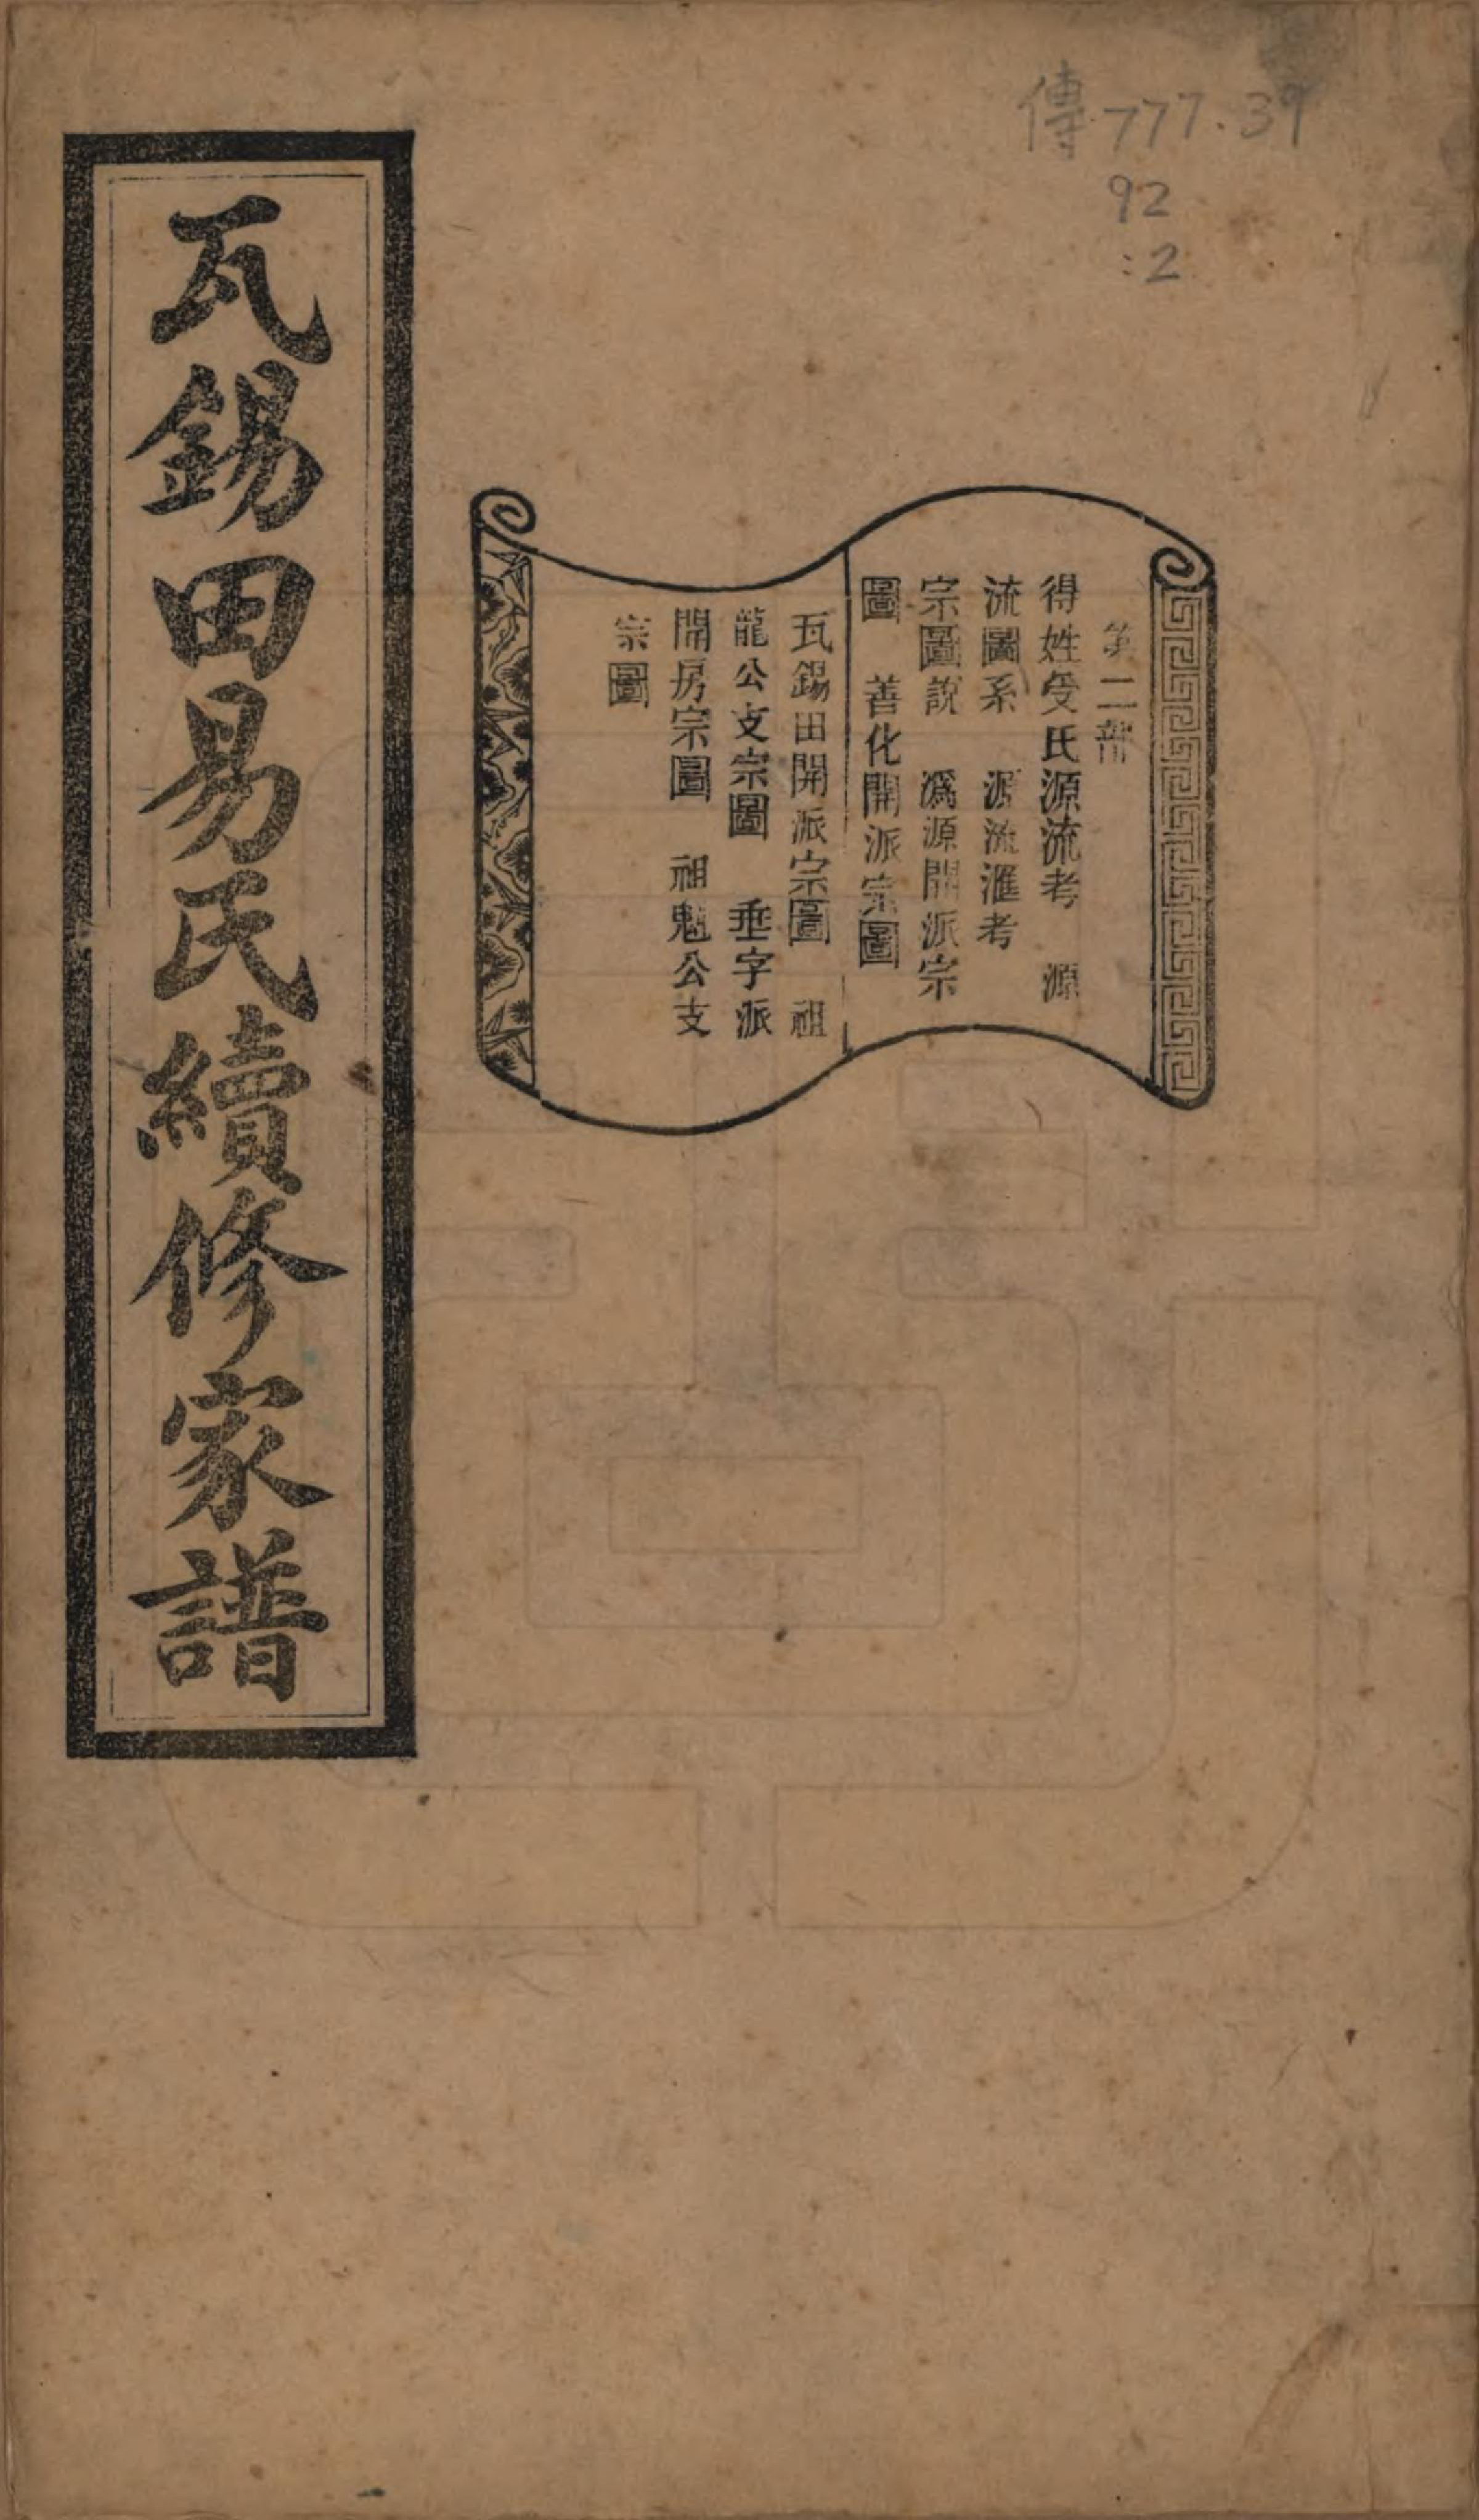 傳 777.39
92
:2
第二部
得姓受氏源流考　源
流圖系　源流滙考
宗圖說　溈源開派宗
圖　善化開派宗圖
瓦錫田開派宗圖　祖
龍公支宗圖　垂字派
開房宗圖　祖魁公支
宗圖
瓦錫田易氏續修家譜